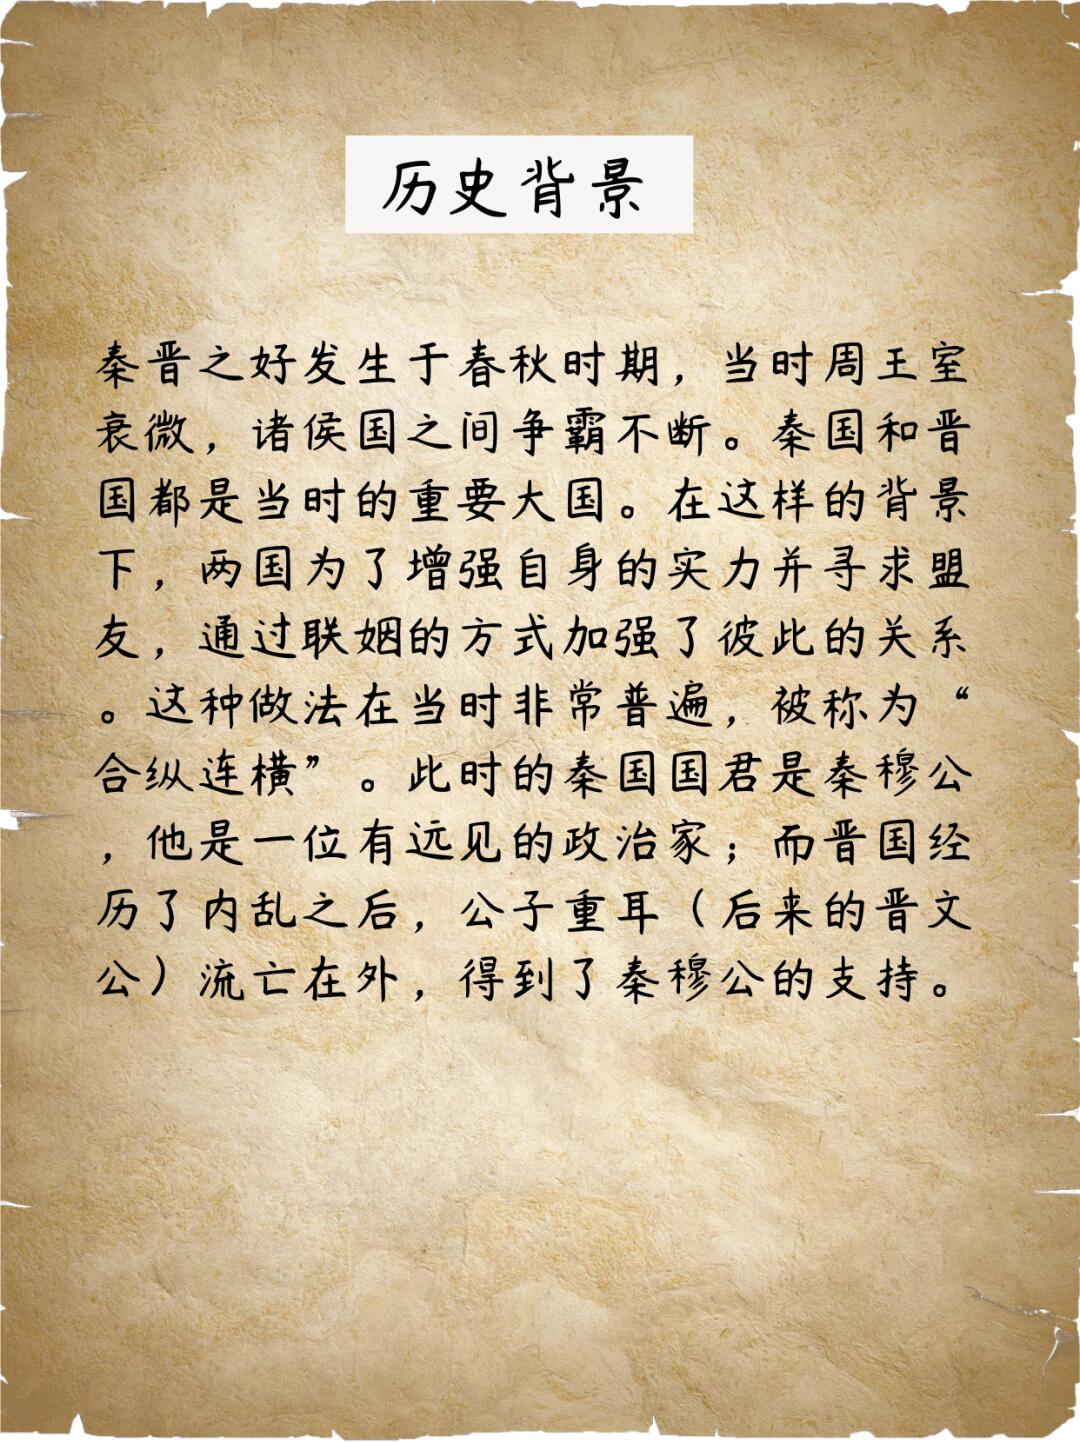 历史背景
秦晋之好发生于春秋时期，当时周王室
衰微，诸侯国之间争霸不断。秦国和晋
国都是当时的重要大国。在这样的背景
下，两国为了增强自身的实力并寻求盟
友，通过联姻的方式加强了彼此的关系
。这种做法在当时非常普遍，被称为“
合纵连横”。此时的秦国国君是秦穆公
，他是一位有远见的政治家；而晋国经
历了内乱之后，公子重耳（后来的晋文
公）流亡在外，得到了秦穆公的支持。